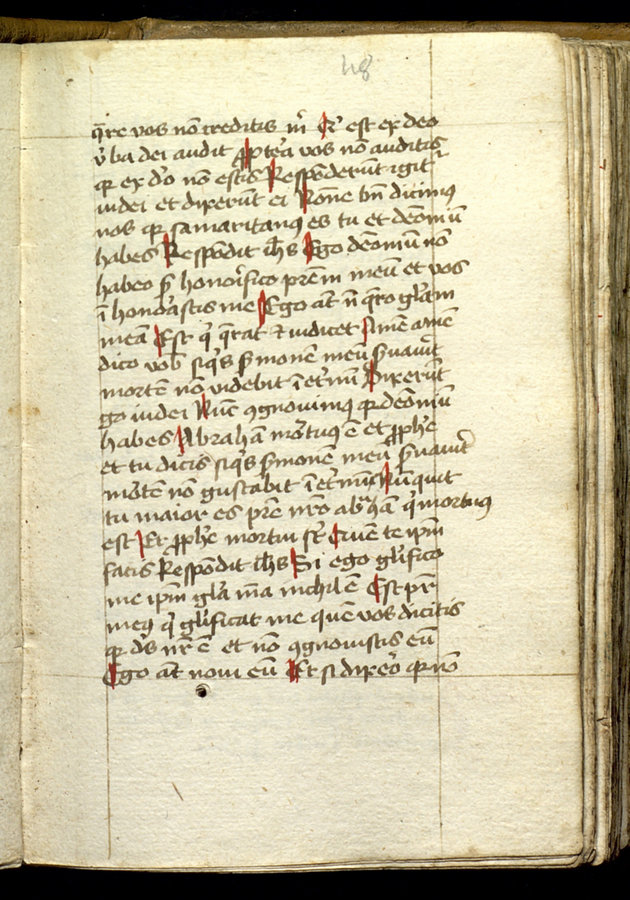 48
q̄re vos nō creditis m̄ Qͥ est ex deo
v̾ba dei audit ꝓpt̾ea vos nō auditis
qꝛ ex dō nō estis Respōderūt igitͬ
iudei et dixerūt ei Nōne bn̄ dicimꝰ
nos qꝛ samaritanꝰ es tu et demōiū
habes Respōdit ih̄s Ego demōiū nō
habeo sꝫ honorifico prēm meū et vos
ī honorastis me Ego aūt nō q̄ro glāꝫ
meā Est qͥ q̄rat ⁊ iudicet Amē amē
dico vob̄ siqͥs s̾monē meū s̾uau̾it
mortē nō videbit ī et̾nū Dixerūt
go iudei Nūc ꝯgnouimꝰ qꝛ demōiū
habes Abrahā mortuꝰ ē et ꝓph̄e
et tu dicis siqͥs s̾monē meū s̾uau̾it
mortē nō gustabit ī et̾nū Nūquit
tu maior es prē nr̄o abrahā qͥ mortuꝰ
est Et ꝓph̄e mortui sūt Quē te ipm̄
facis Respōdit ih̄s Si ego glifico
me ipm̄ gla mā nichil ē Est pr̄
meꝰ qͥ glificat me quē vos dicitis
qꝛ ds̄ nr̄ ē et nō ꝯgnouistis eū
Ego aūt noui eū Et si dixero qꝛ nō